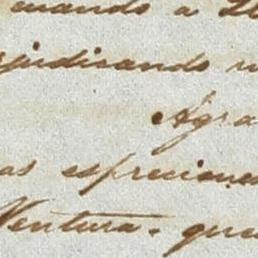 mando a
judicando
Agra
as espreciones
Ventura. que